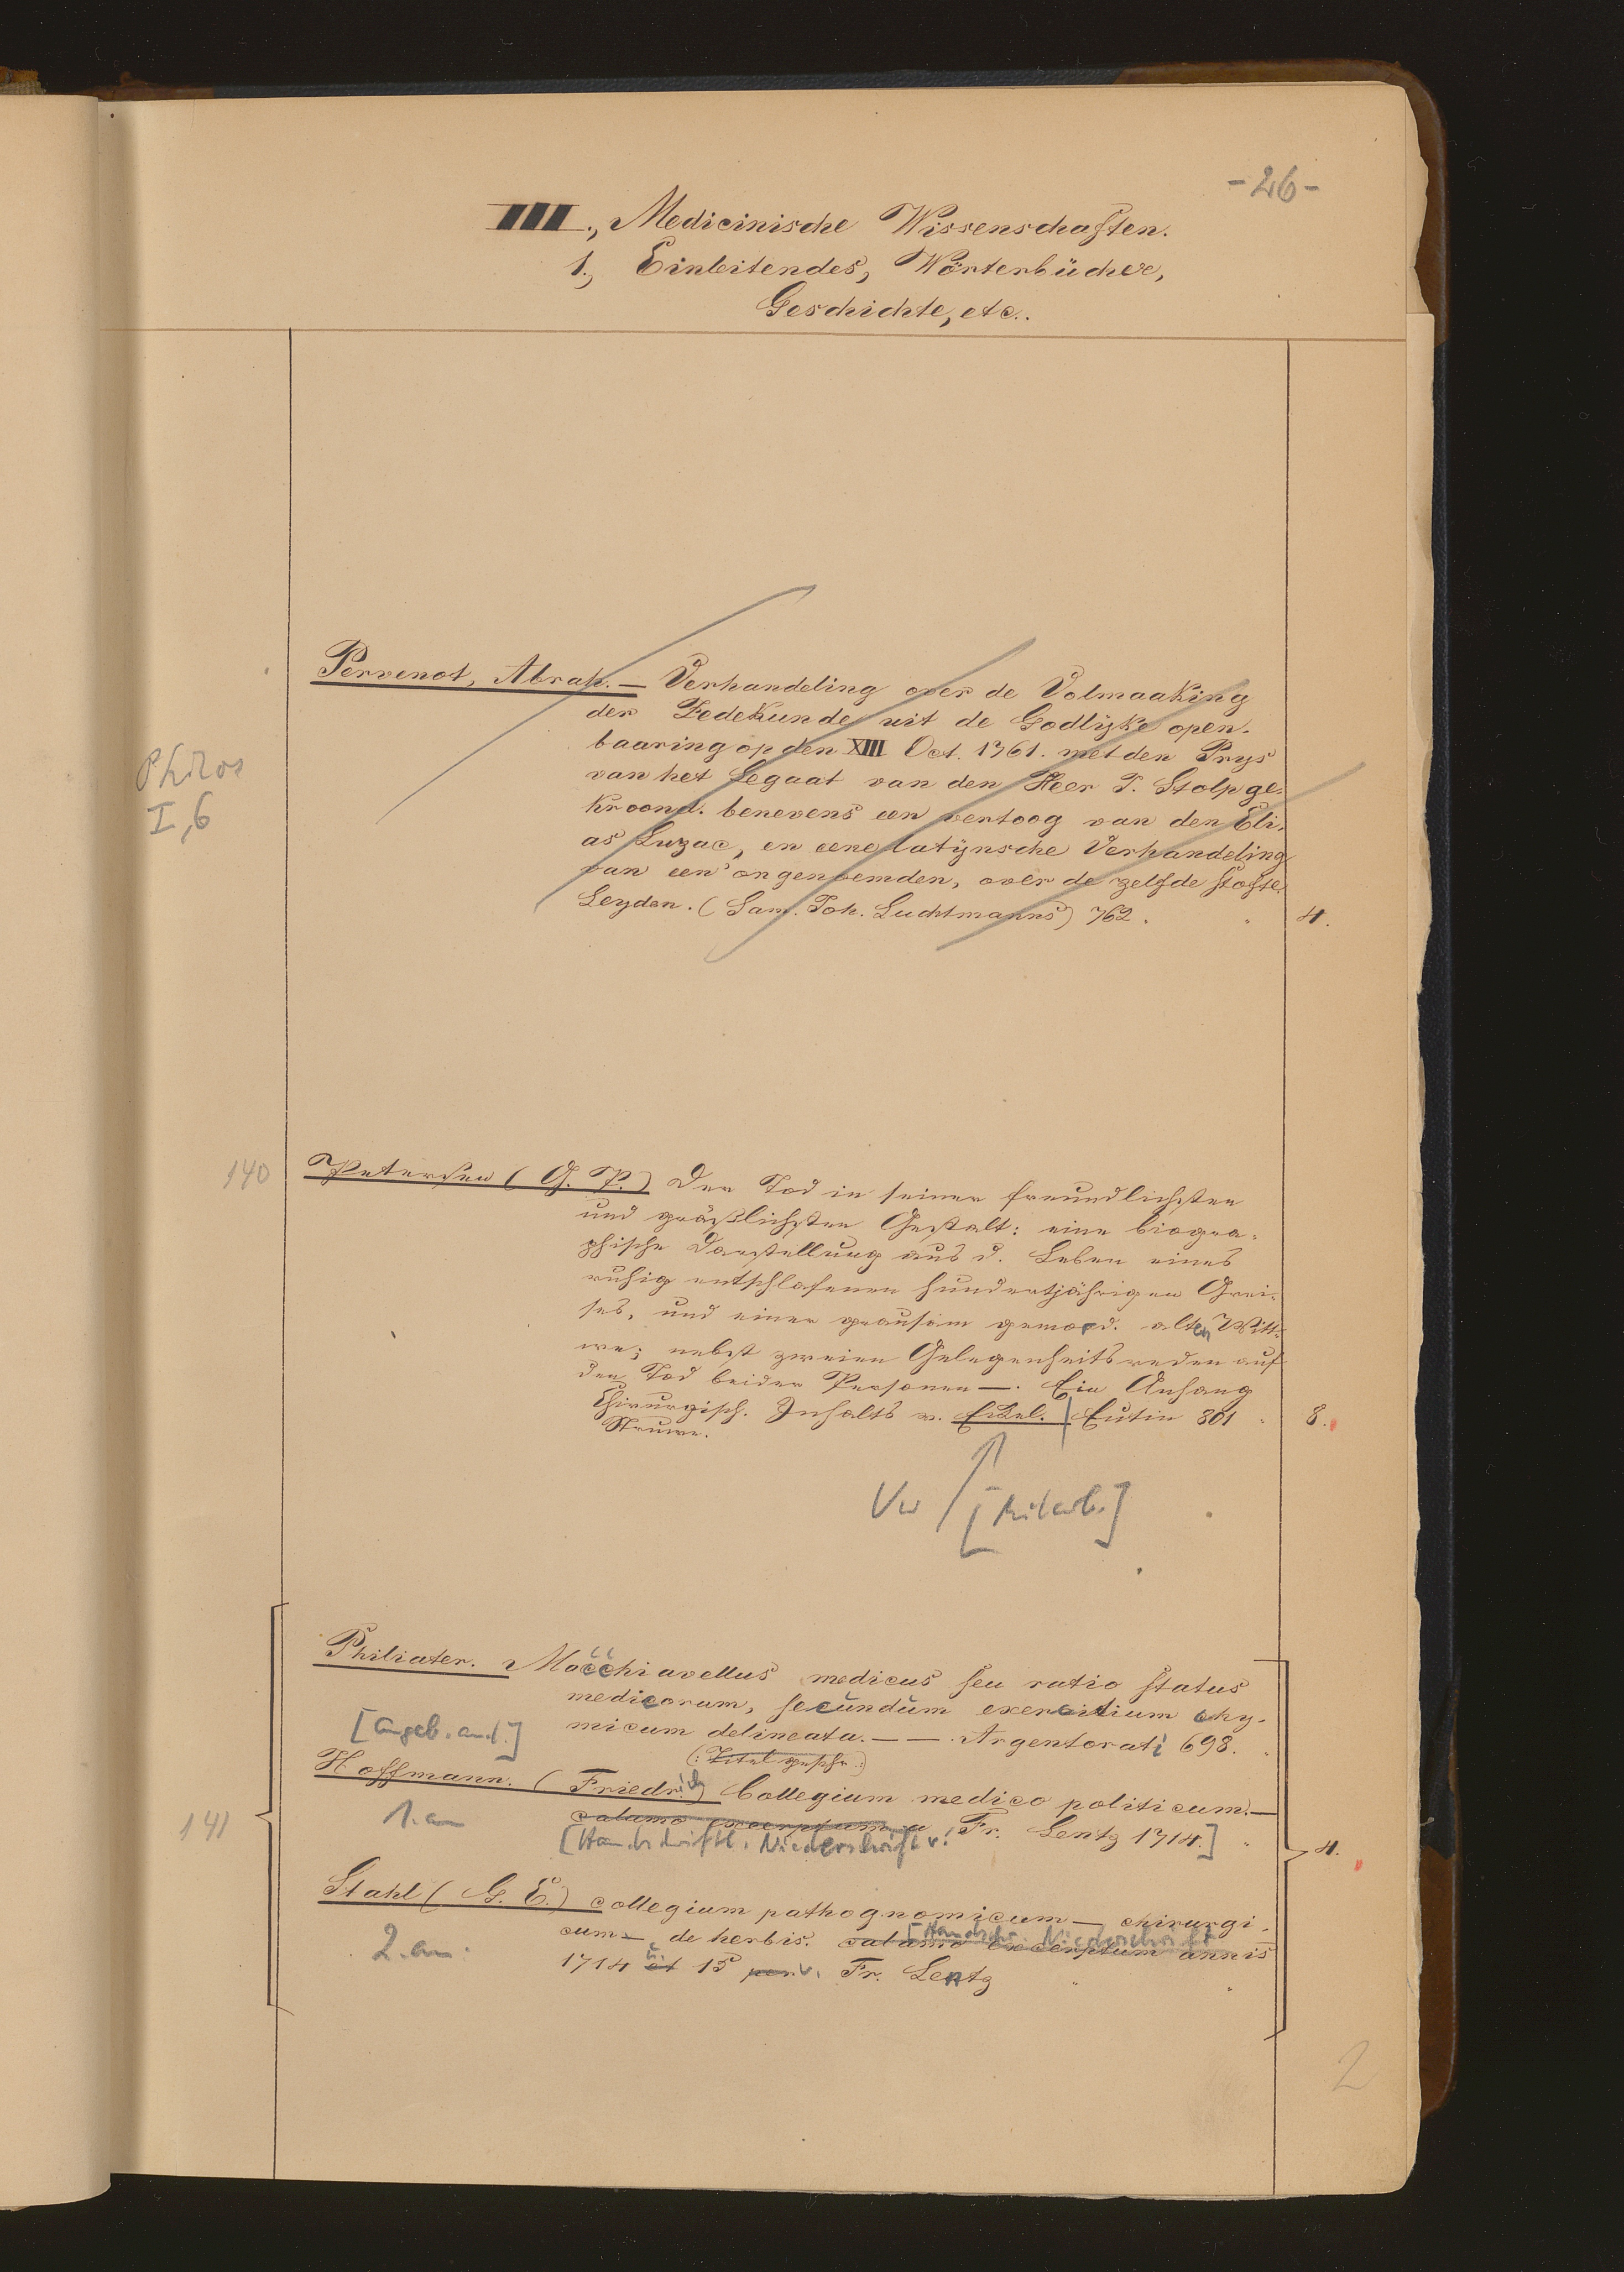 -26-
III., Medicinische Wissenschaften.
1., Einleitendes, Wörterbücher,
Geschichte, etc..
Pervenot, Abrah. — Verhandeling over de Volmaaking
der Zedekunde uit de Godlijke open-
baaring op den XIII Oct. 1761. met den Prys
van het Legaat van den Heer J. Stolp ge-
kroond. benevens een vertoog van den Eli-
as Luzac, en eene latijnsche Verhandeling
van een ongenoemden, over de zelfde stoffe
Leyden. (Sam. Joh. Luchtmanns) 762. " 4.
Philos
I,6
140
Petersen (G. P.) Der Tod in seiner freundlichsten
und gräßlichsten Gestalt: eine biogra-
phische Darstellung aus d. Leben eines
ruhig entschlafenen hundertjährigen Grei-
ses, und einer grausam gemord. alten Witt-
we; nebst zweien Gelegenheitsreden auf
den Tod beider Personen —. Ein Anhang
Chirurgisch. Inhalts v. Ezkel. | Eutin 801 " 8.
Struve.
Vw [Mitarb.]
Philiater. Macchiavellus medicus seu ratio status
medicorum, secundum exercitium chy-
micum delineata. — — . Argentorati 698. "
[Angeb. an .]
(: Titel geschr :)
Hoffmann. (Friedrich) Collegium medico politicum. —
1. an
calamo exceptum a Fr. Lentz 1714.] "
[Handschriftl. Niederschrift v.
141
4.
Stahl (G. E.) collegium pathognomicum — chirurgi-
cum —, de herbis. calamo exceptum annis
[Handschr. Niederschrift
2. an.
1714 et u. 15 per v. Fr. Lentz " "
2